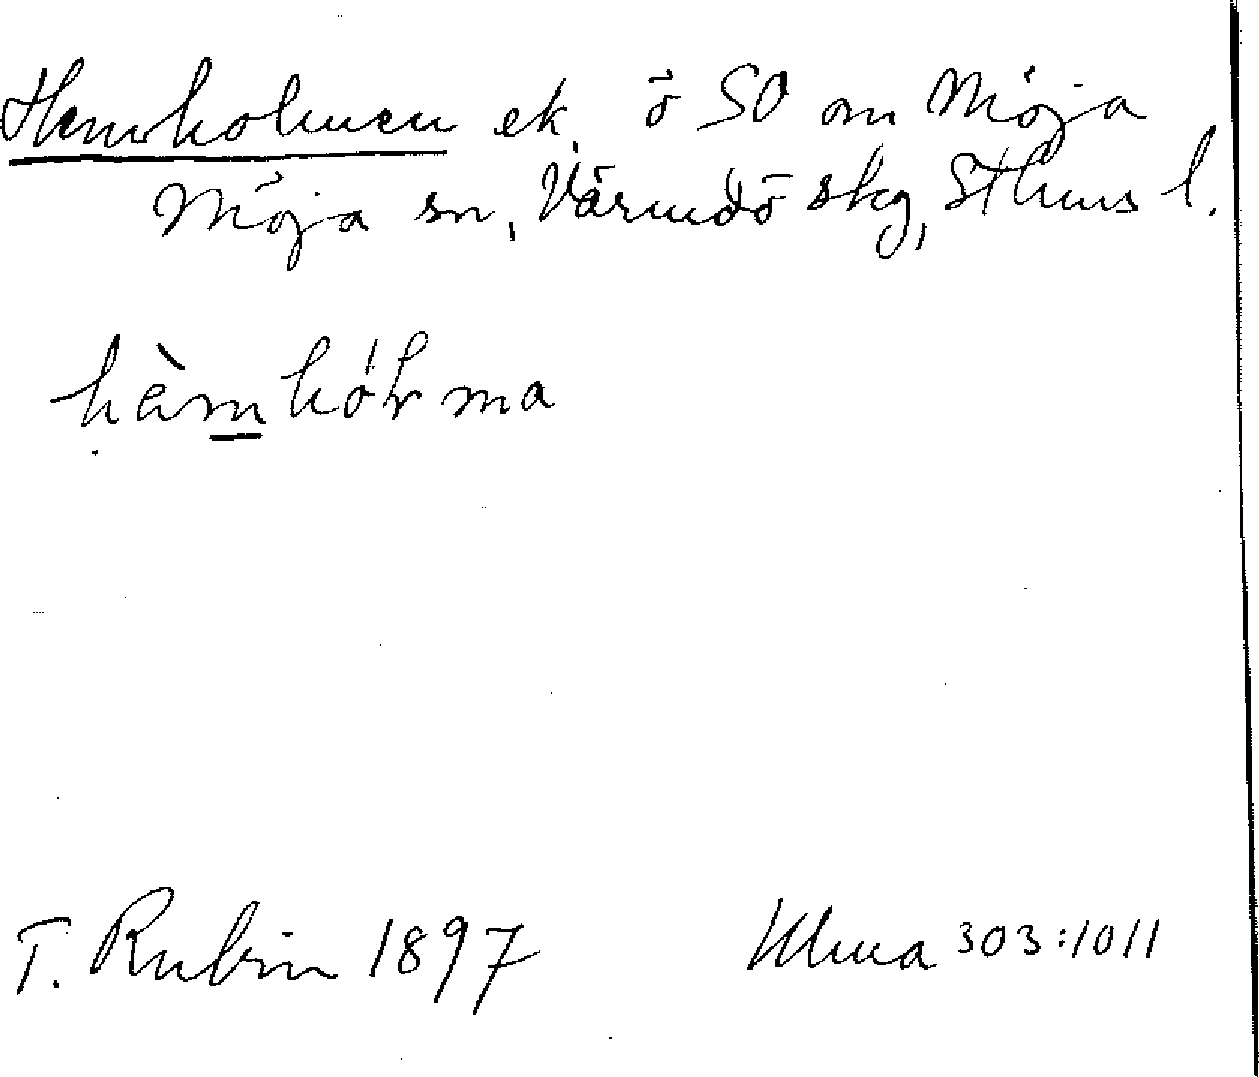 Hemholmen ek, ö SO om Möja
Möja sn, Värmdö skg, Sthms l.
hàmhól̥ma
T. Rubin 1897 Uluma 303:1011